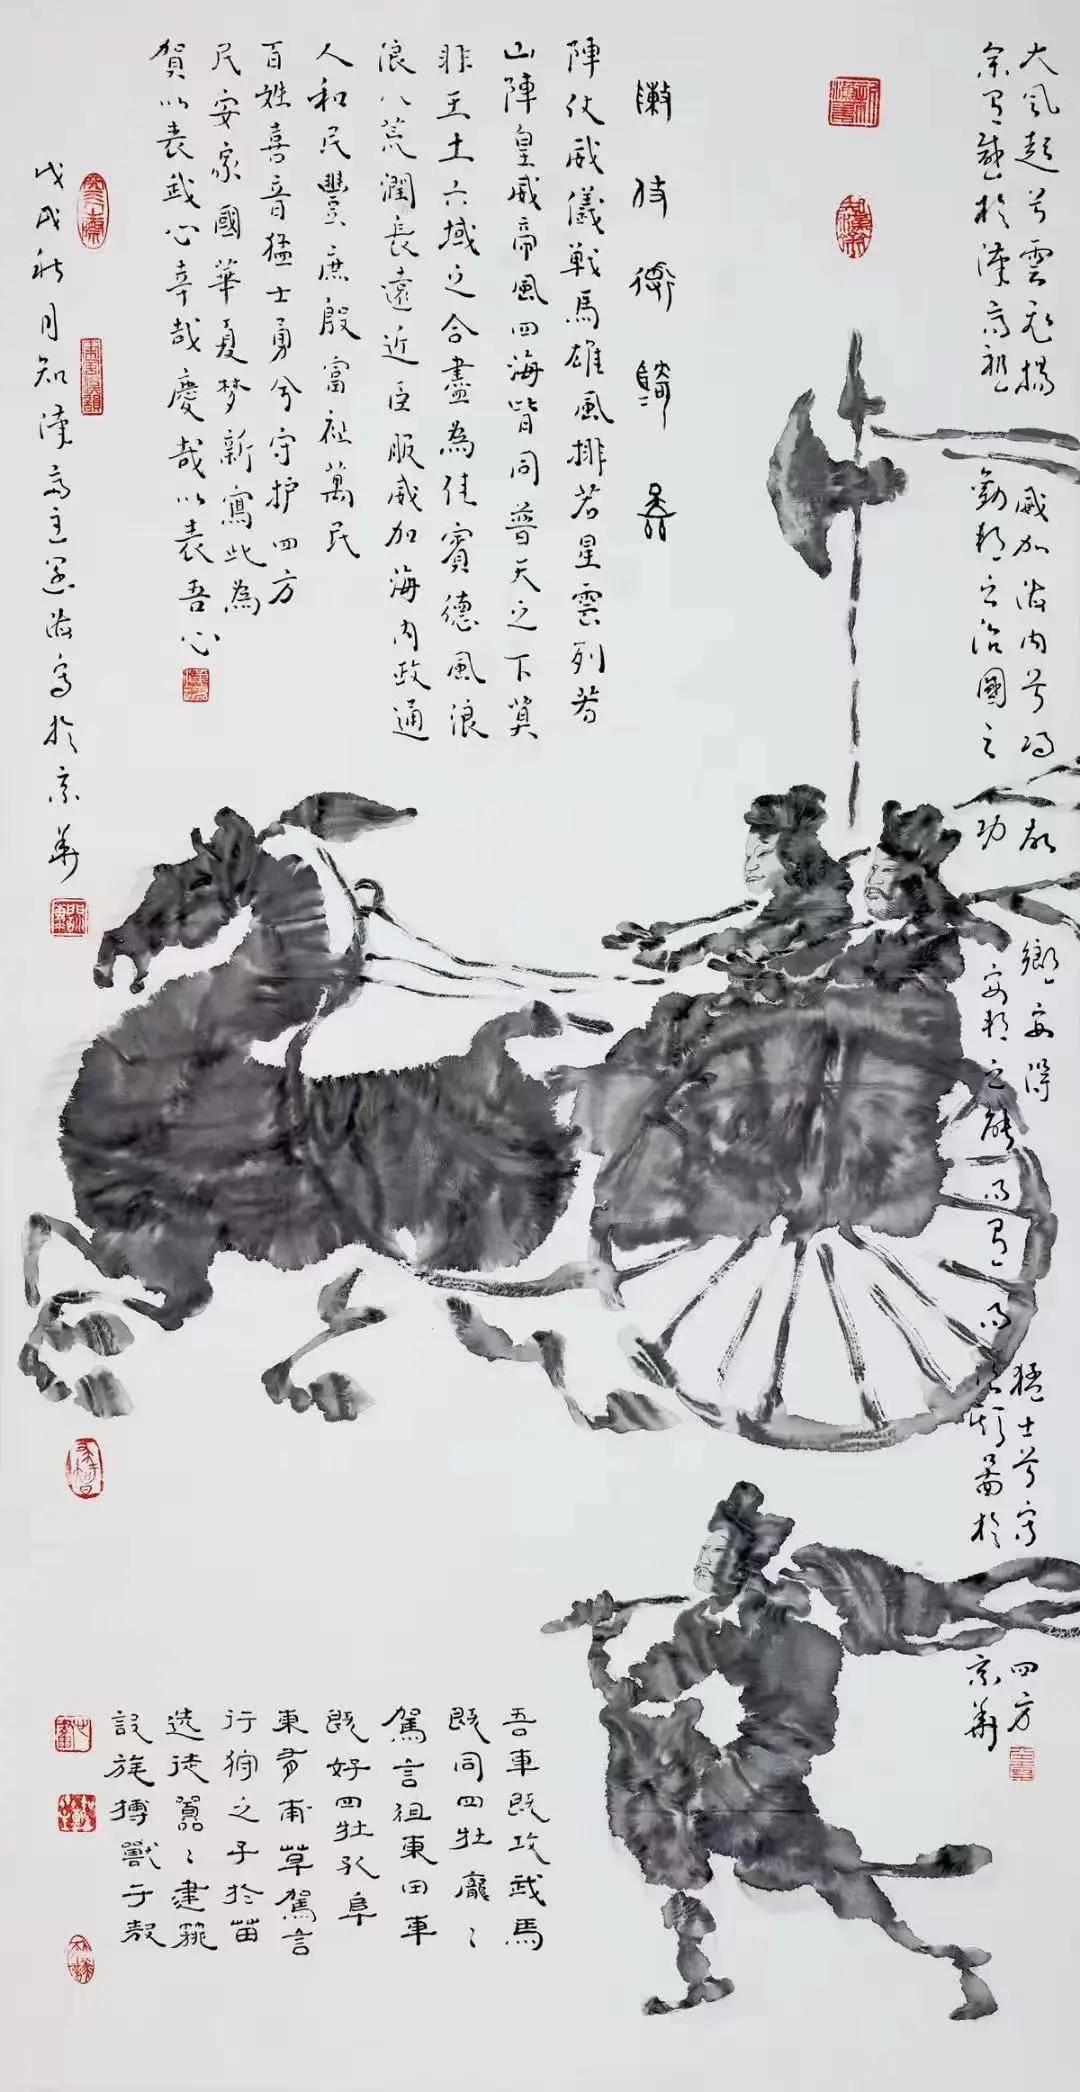 大風起兮雲飛揚 威加海内兮歸故 鄉安得 猛士兮守 四方
余有感於漢高祖 劉邦之治國之功 安邦之能而有 於 京華
衛
陣仗威儀戰馬雄風排若星雲列若
山陣皇威帝風四海皆同普天之下莫
非王土六域之合盡為佳賓德風浪
浪八荒潤長遠近臣服威加海内政通
人和民豐庶殷富祉萬民
百姓喜音猛士勇兮守护四方
民安家國華夏梦新寫此為
賀以表武心幸哉慶哉以表吾心
戊戌秋月知漢 主 海寫於京華
吾車既攻武馬
既同四牡龐〻
駕言徂東田車
既好四牡孔阜
東有甫草駕言
行狩之子於苗
选徒囂〻建旐
設旄搏獸于敖